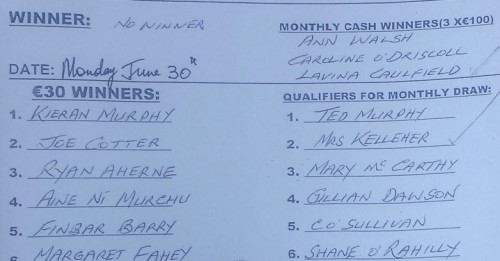 WINNER: NO WINNER
MONTHLY CASH WINNERS(3 X€100)
ANN WALSH
CAROLINE O'DRISCOLL
LAVINA CAULFIELD
DATE: Monday June 30th
€30 WINNERS:
1. KIERAN MURPHY
2. JOE COTTER
3. RYAN AHERNE
4. AINE NI MURCHU
5. FINBAR BARRY
6 MARGARET FAHEY
QUALIFIERS FOR MONTHLY DRAW:
1. TED MURPHY
2. MRS KELLEHER
3. MARY Mc CARTHY
4. GILLIAN DAWSON
5. C O'SULLIVAN
6. SHANE O'RAHILLY